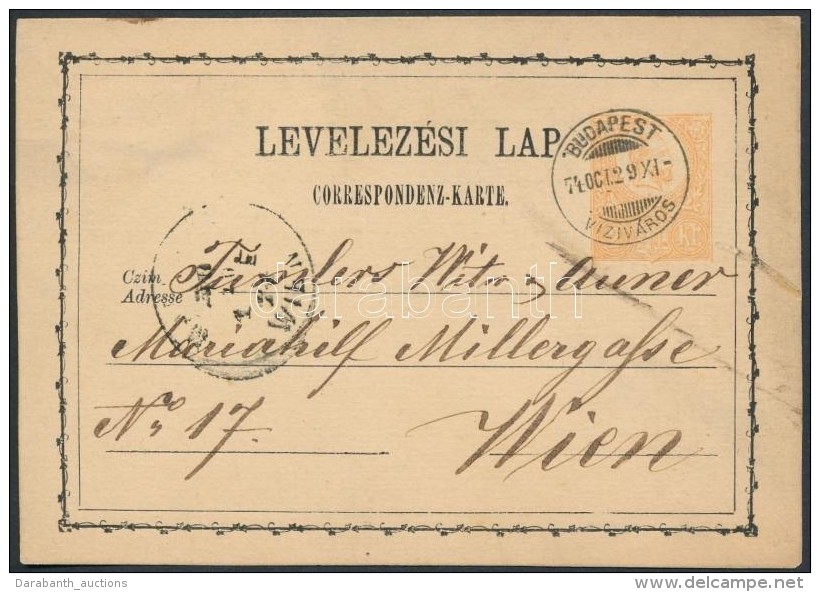 LEVELEZÉSI LAP
CORRESPONDENZ-KARTE.
BUDAPEST
74 OCT. 29 XI-
VIZIVÁROS
KR
Czim
Adresse
Tumlers Witw & Auner
WIEN
Mariahilf Millergasse
No 17.
Wien
darabanth
Darabanth_auctions
delcampe.net